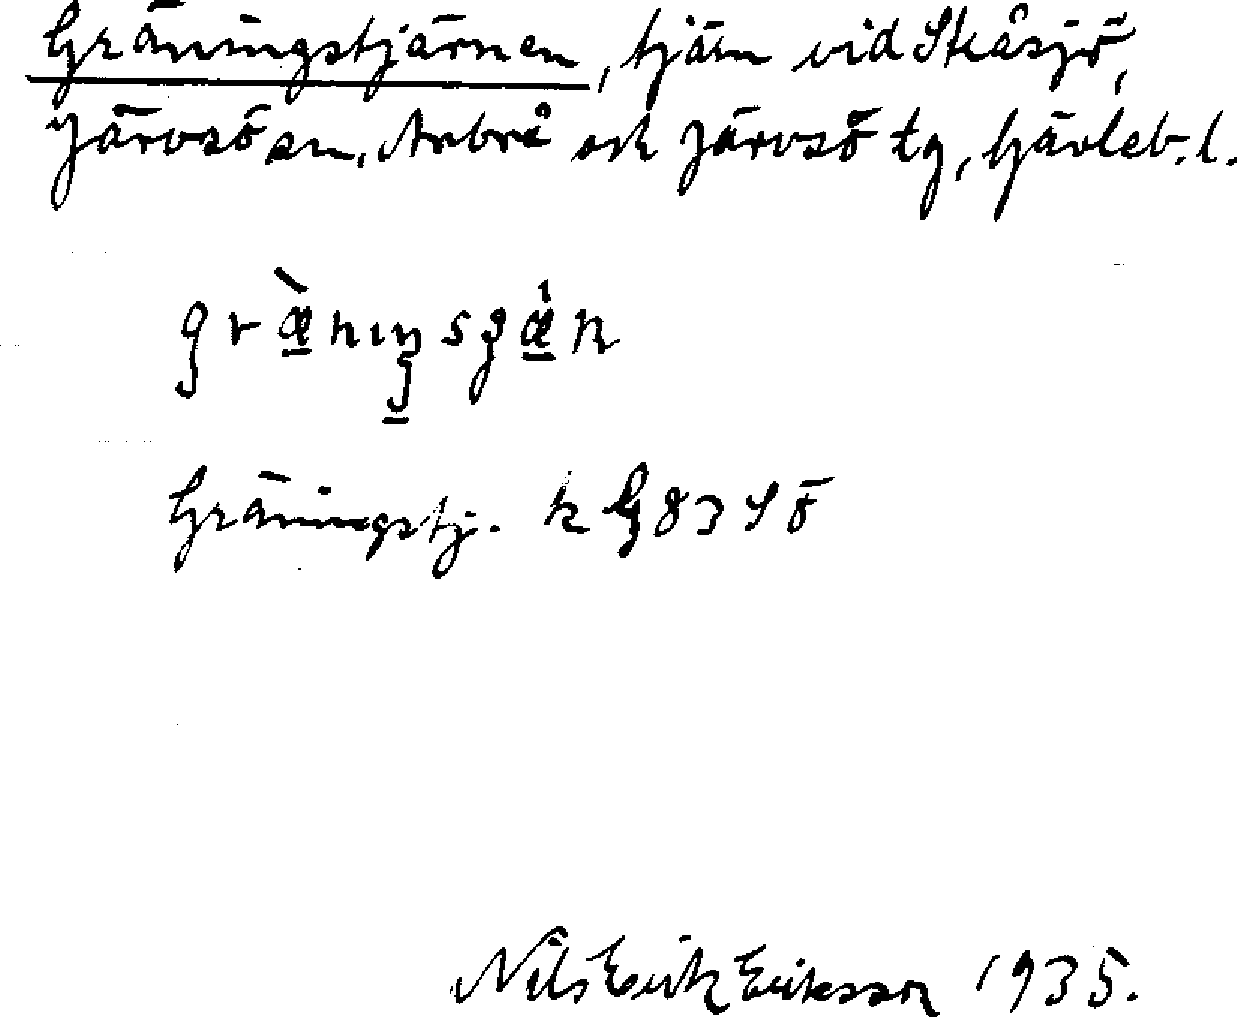 Gräningstjärnen, tjärn vid Skåsjö,
Järvsö sn, Arbrå och Järvsö tg, Gävleb. l.
Gräningstj. k
Nils Erik Eriksson 1935.